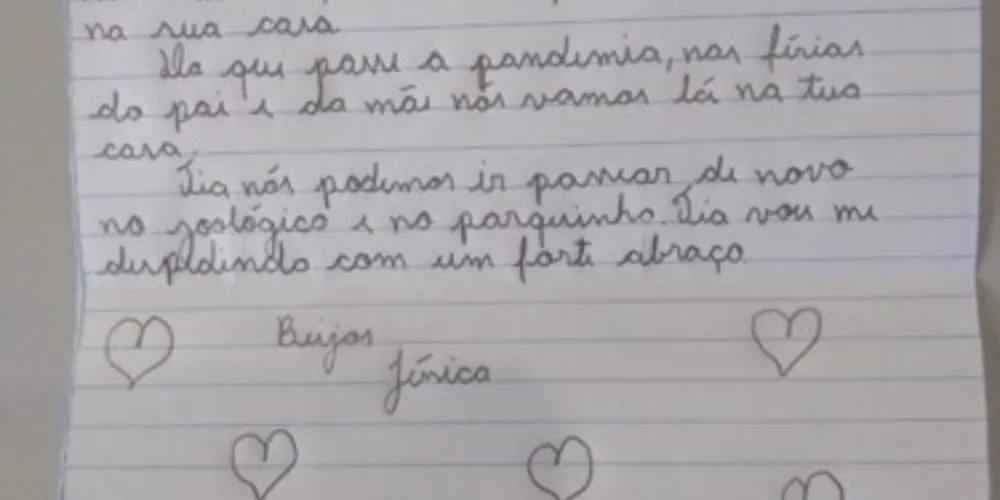 na sua casa
Ila que passe a pandemia, nas férias
do pai e da mãe nós vamos lá na tua
casa.
Tia nós podemos ir passear de novo
no zoológico e no parquinho. Tia vou me
despldindo com um forte abraço.
Beijos
Jénica